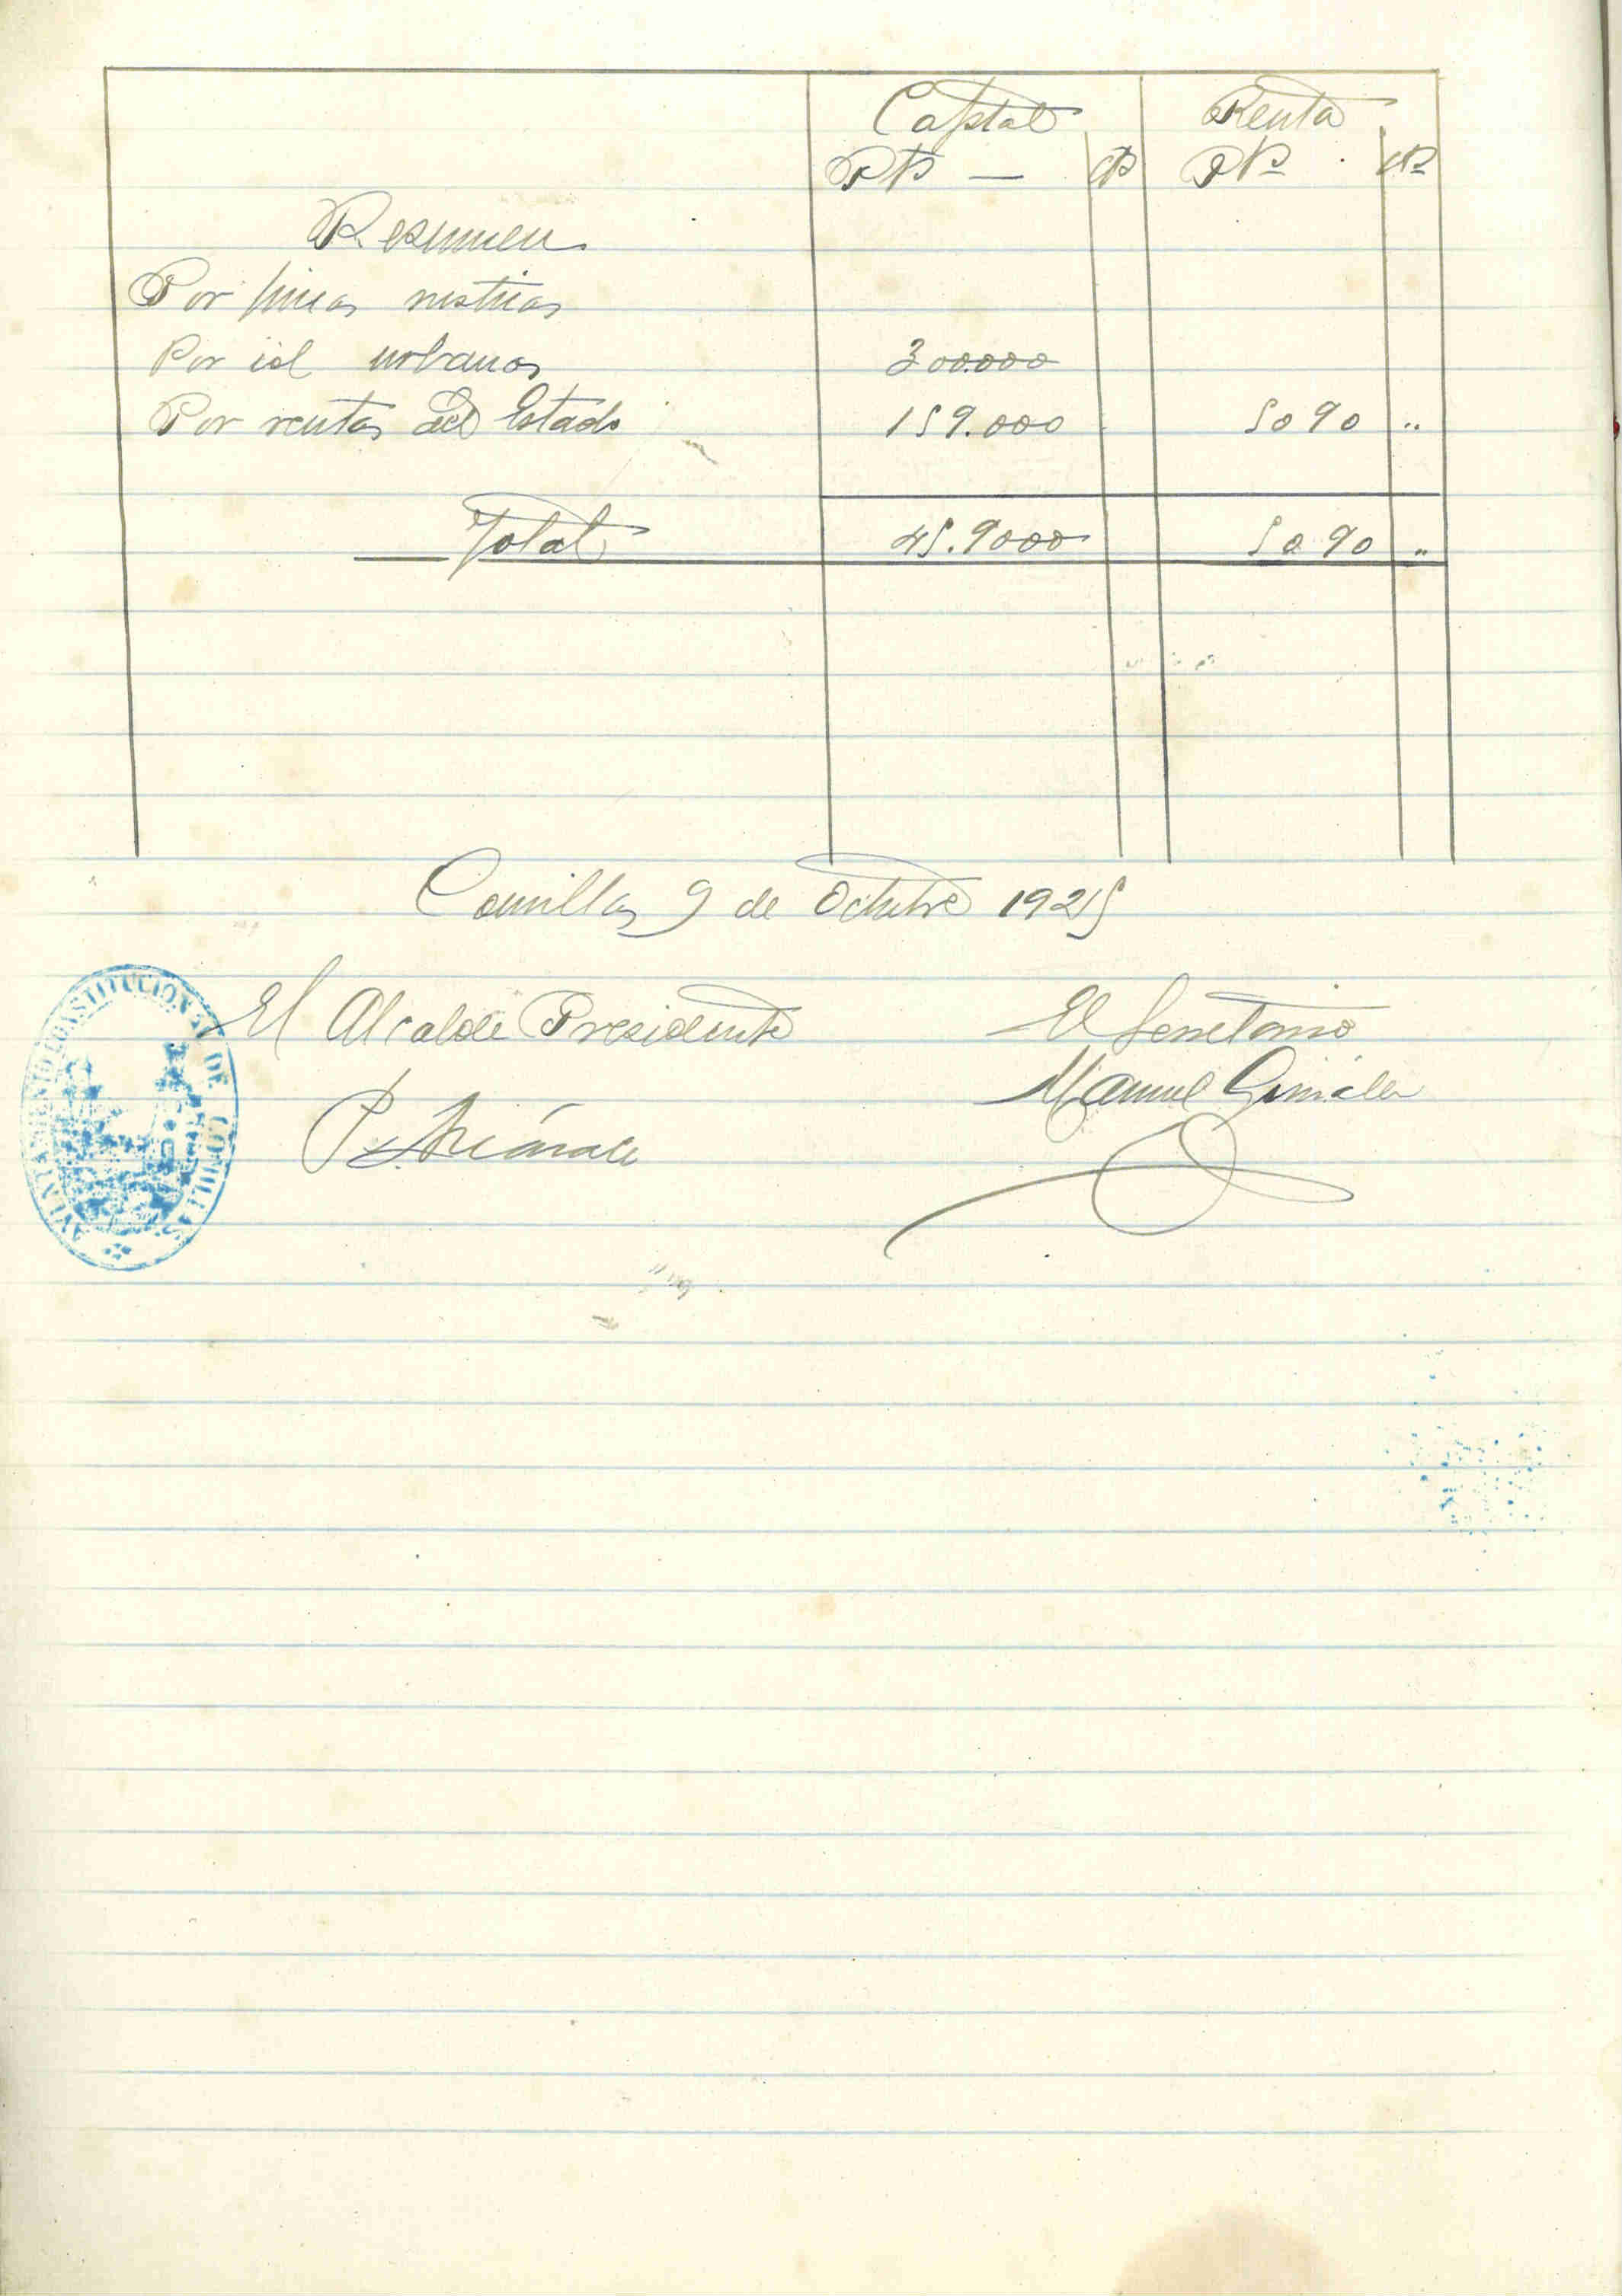 Capital Renta
Pts — cts Pts cts
Resumen
Por fincas rusticas
Por id urbanas 300.000
Por rentas del Estado 159.000 5090 "
Total 45.9000 5090 "
Comillas 9 de Octubre 1925
El Alcalde Presidente El Secretario
Manuel
AYUNTAMIENTO CONSTITUCIONAL DE COMILLAS